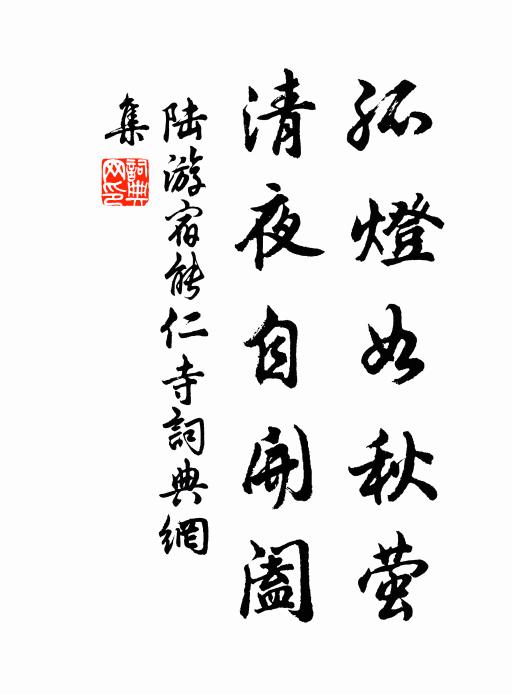 孤燈如秋萤
清夜自開阖
陆游宿能仁寺詞典網
集
詞典网印